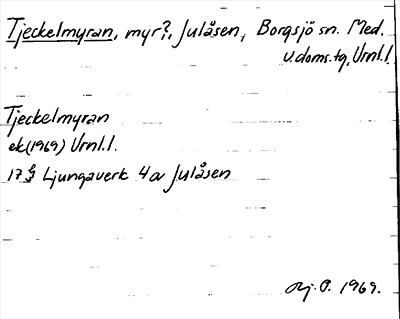 Tjeckelmyran, myr?, Julåsen, Borgsjö sn. Med.
v.doms.tg, Vrnl.l.
Tjeckelmyran
ek(1969) Vrnl.l.
17 Ljungaverk 4a Julåsen
1969.